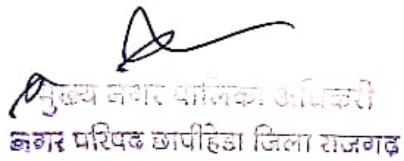 मुख्य नगर पालिका अधिकारी
नगर परिषद छापीहेडा जिला राजगढ़